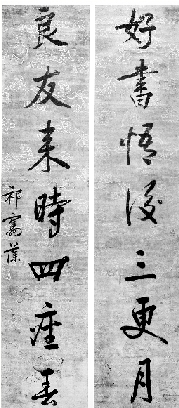 好書悟後三更月
良友来時四座春
祁寯藻